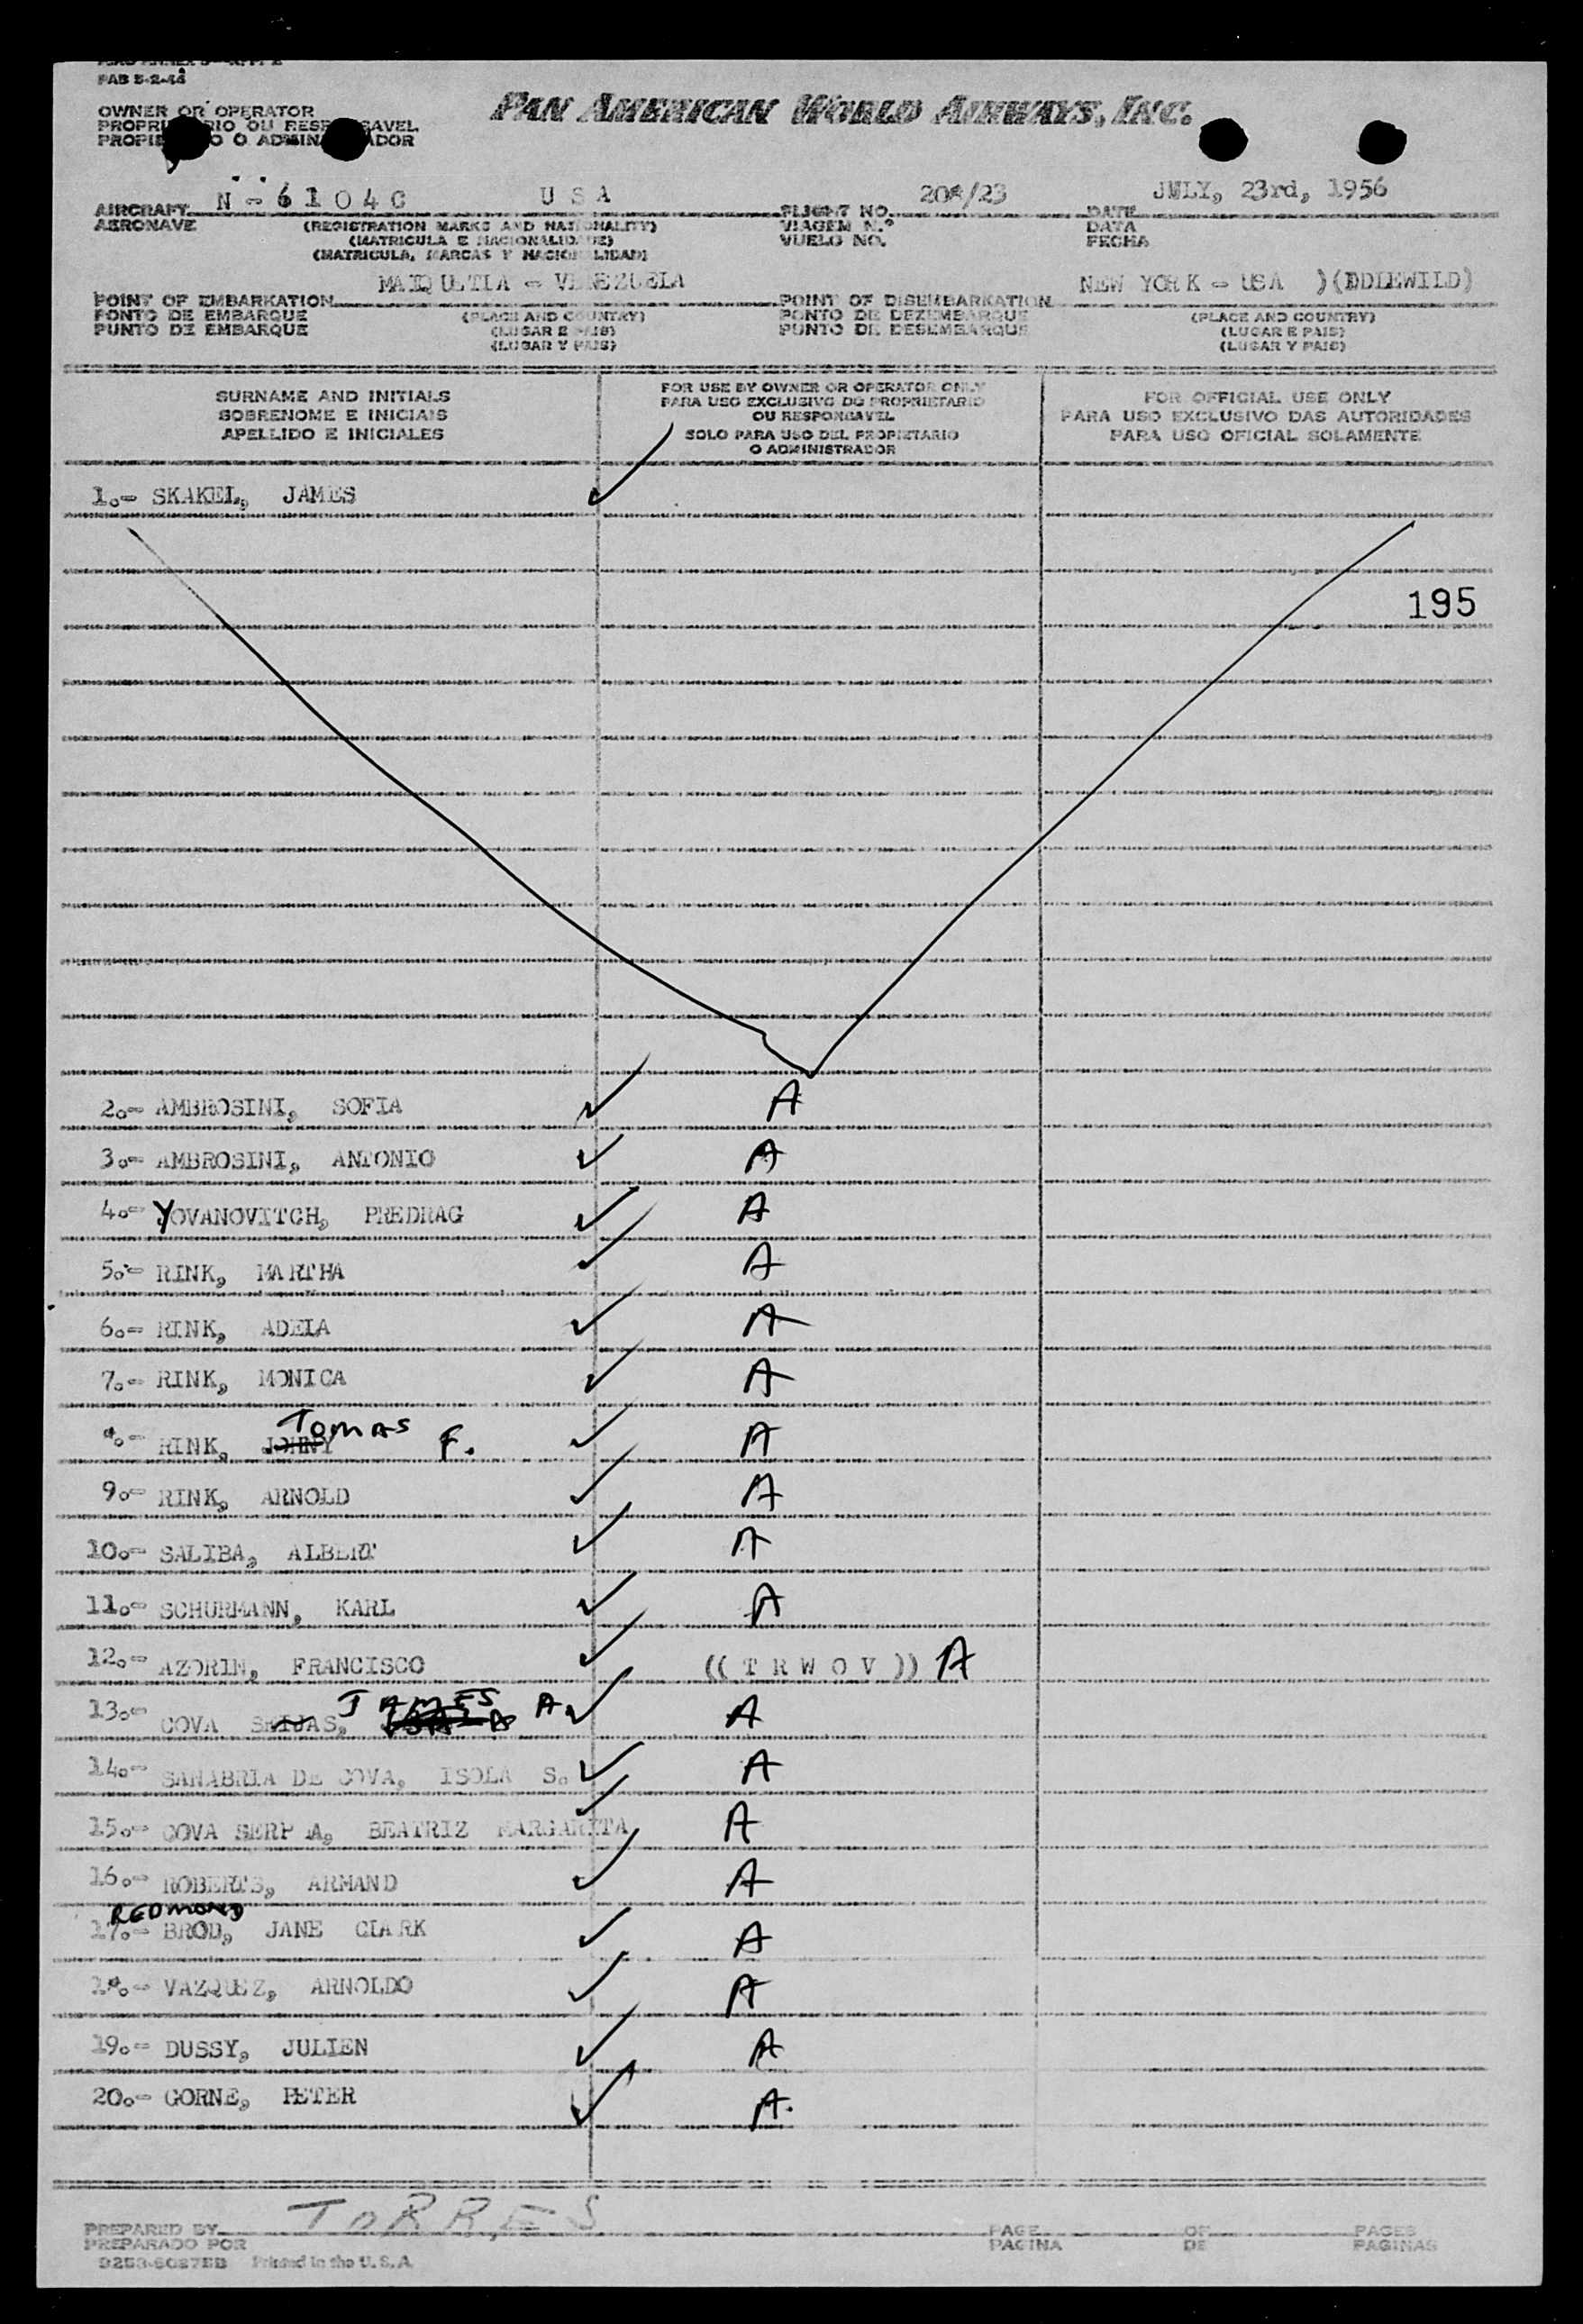 FAB 5-2-44
PAN AMERICAN WORLD AIRWAYS, INC.
OWNER OR OPERATOR
OU
O ADMIN
N - 6104C U S A 204/23 JULY, 23rd, 1956
AIRCRAFT FLIGHT NO. DATE
AERONAVE (REGISTRATION MARKS AND NATIONALITY) VIAGEM N.º DATA
(MATRICULA E NACIONALIDADE) VUELO NO. FECHA
(MATRICULA, MARCAS Y NACIONALIDAD)
MAIQUETIA - VENEZUELA NEW YORK - USA )(IDDLEWILD)
POINT OF EMBARKATION POINT OF DISEMBARKATION
PONTO DE EMBARQUE (PLACE AND COUNTRY) PONTO DE DEZEMBARQUE (PLACE AND COUNTRY)
PUNTO DE EMBARQUE (LUGAR E PAIS) PUNTO DE DESEMBARQUE (LUGAR E PAIS)
(LUGAR Y PAIS) (LUGAR Y PAIS)
SURNAME AND INITIALS
SOBRENOME E INICIAIS
APELLIDO E INICIALES
FOR USE BY OWNER OR OPERATOR ONLY
PARA USO EXCLUSIVO DO PROPRIETARIO
OU RESPONSAVEL
SOLO PARA USO DEL PROPIETARIO
O ADMINISTRADOR
FOR OFFICIAL USE ONLY
PARA USO EXCLUSIVO DAS AUTORIDADES
PARA USO OFICIAL SOLAMENTE
1.- SKAKEL, JAMES
195
2.- AMBROSINI, SOFIA A
3.- AMBROSINI, ANTONIO A
4.- YOVANOVITCH, PREDRAG A
5.- RINK, MARTHA A
6.- RINK, ADELA A
7.- RINK, MONICA A
RINK, JOHNY TOMAS F. A
9.- RINK, ARNOLD A
10.- SALIBA, ALBERT A
11.- SCHURMANN, KARL A
12.- AZORIN, FRANCISCO (( T R W O V )) A
13.- COVA SEIJAS, JAMES A. A
14.- SANABRIA DE COVA, ISOLA S. A
15.- COVA BEATRIZ MARGARITA A
16.- ROBERTS, ARMAND A
REDMOND
17.- BROD, JANE CLARK A
VAZQUEZ, ARNOLDO A
19.- DUSSY, JULIEN A
20.- GORNE, PETER A.
TORRES
PREPARED BY PAGE OF PAGES
PREPARADO POR PAGINA DE PAGINAS
Printed in the U.S.A.